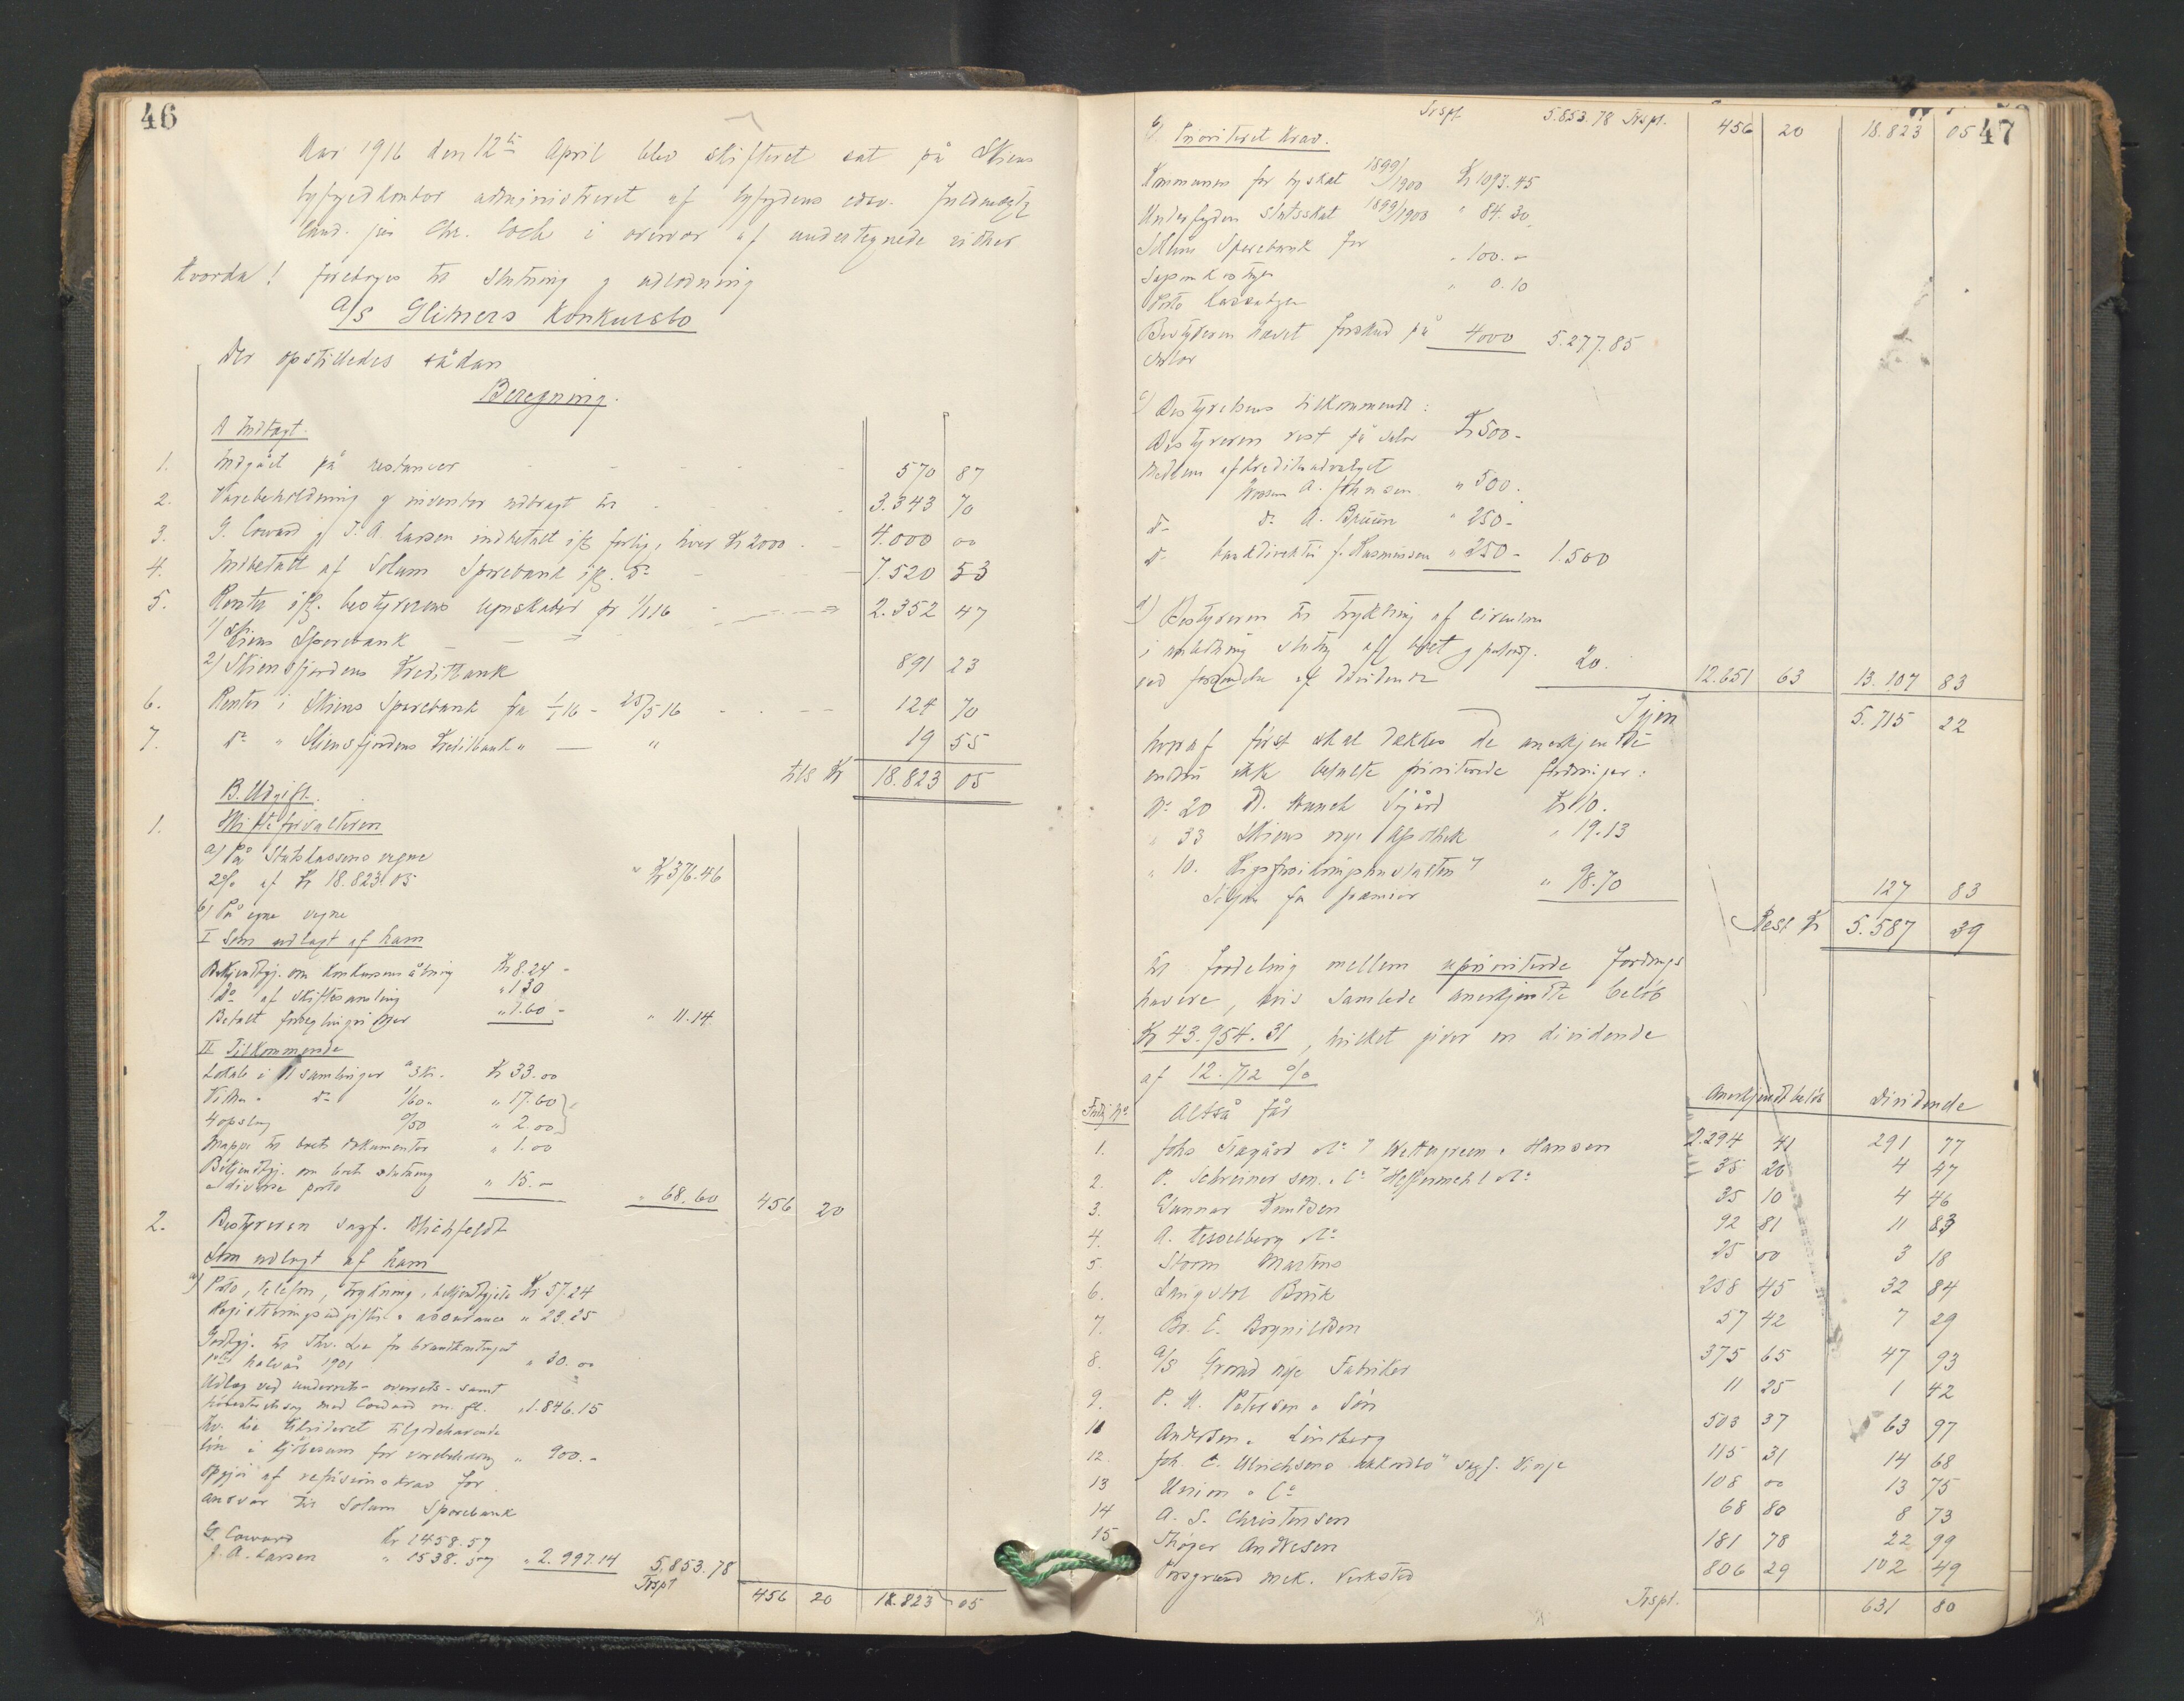 46
Aar 1916 den 12te April blev skifteret sat på Skiens
byfogedkontor administreret af byfogdens edsv. fuldmægtig
cand. jur Chr. Coch i overvær af undertegnede vidner
Hvorda! foretoges til slutning og udlodning
A/S Glitners Konkursbo
Der opstilledes sådan
Beregning.
A Indtægt.
1. Indgået på restancer 570 87
2. Varebeholdning og inventar udbragt til 3.343 70
3. G. Coward og J. A. Larsen indbetalt ifg forlig, hver Kr 2000 4.000 00
4. Indbetalt af Solum Sparebank ifg. do 7.520 53
5. Renter ifg. bestyrerens regnskaber pr 1/1 16
1) Skiens Sparebank 2.352 47
2) Skiensfjordens Kreditbank 891 23
6. Renter i Skiens Sparebank fra 1/1 16 - 25/5 16 124 70
7. do " Skiensfjordens Kreditbank " — " 19 55
tils Kr 18.823 05
B. Udgift.
1. Skifteforvalteren
a) På Statskassens vegne
2% af Kr 18.823.05 " Kr 376.46
b) På egne vegne
I Som udlagt af ham
Bekjendtgj. om konkursens åbning Kr 8.24
Do af skiftesamling " 1.30
Betalt forseglingsvidner " 1.60 " 11.14
II Tilkommende
Lokale i 11 samlinger a 3 Kr. Kr 33.00
Vidner " do 1/60 " 17.60
4 opslag 0/50 " 2.00
Mappe til boets dokumenter " 1.00
Bekjendtgj. om boets slutning
diverse porto " 15.- " 68.60 456 20
2. Bestyreren sagf. Blichfeldt
Som udlagt af ham
a) Porto, telefon, trykning, bekjendtgjørelse Kr 57.24
Registreringsudgifter & assurance " 23.25
Godtgj. til Thv. Lie for brandkontingent
1ste halvår 1901 " 30.00
Udlæg ved underrets- overrets- samt
høiesteretssag mod Coward m. fl. " 1.846.15
Thv. Lie tilvideret tilgodehavende
løn i kjøbesum for varebeholdning " 900.-
Opgjør af refusionskrav for
ansvar til Solum Sparebank
G. Coward Kr 1458.57
J. A. Larsen " 1538.57 " 2.997.14 5.853.78
Trspt 456 20 18.823 05
47
Trspt. 5.853.78 Trspt. 456 20 18.823 05
b) Prioriteret Krav.
Kommunen for byskat 1899/1900 Kr 1093.45
Underfogden statsskat 1899/1900 " 84.30
Solum Sparebank for
Sagsomkostninger " 100.-
Porto " 0.10
Bestyreren hævet forskud på
salær 4000 5.277.85
c) Bestyrelsens tilkommende:
Bestyreren rest på salær Kr 500-
Medlem af Kreditorudvalget
A. Johnsen " 500.
do do A. Bruun " 250-
do bankdirektør J. Rasmussen " 250- 1.500
d) Bestyreren til trykning af circulære
i anledning slutning af boet og porto
ved forsendelse af dividende 20. 12.651 63 13.107 83
Igjen 5.715 22
hvoraf først skal dækkes de anerkjendte
endnu ikke betalte prioriterede fordringer:
No 20 Dr. Munch Søegård Kr 10.
" 33 Skiens nye Apothek " 19.13
" 10. Rigsforsikringsanstalten
for præmier " 98.70 127 83
Rest Kr 5.587 39
til fordeling mellem upriviterede fordrings
havere, hvis samlede anerkjendte beløb
Kr 43.954.31, hvilket giver en dividende
af 12.712 %
Anerkjendt beløb Dividende
Fordg No Altså får
1. Johs Fragård No 7 Wettergreen & Hansen 2.294 41 291 77
2. P. Schreiner sen. & Co Heftermehl No 35 20 4 47
3. Gunnar Knudsen 35 10 4 46
4. A. Hesselberg No 92 81 11 83
5. Storm Martens 25 00 3 18
6. Langslet Brük 258 45 32 84
7. Br. E. Bognildsen 57 42 7 29
8. A/S Grorud nye Fabriker 375 65 47 93
9. P. H. Petersen & Søn 11 25 1 42
10 Andersen & Lindberg 503 37 63 97
12. Joh. E. Ulrichsens akkordbo sagf. Vinje 115 31 14 68
13 Union & Co 108 00 13 75
14 A. S. Christensen 68 80 8 73
15 Thøger Andresen 181 78 22 99
Porsgrund mek. Verksted 806 29 102 49
Trspt. 631 80